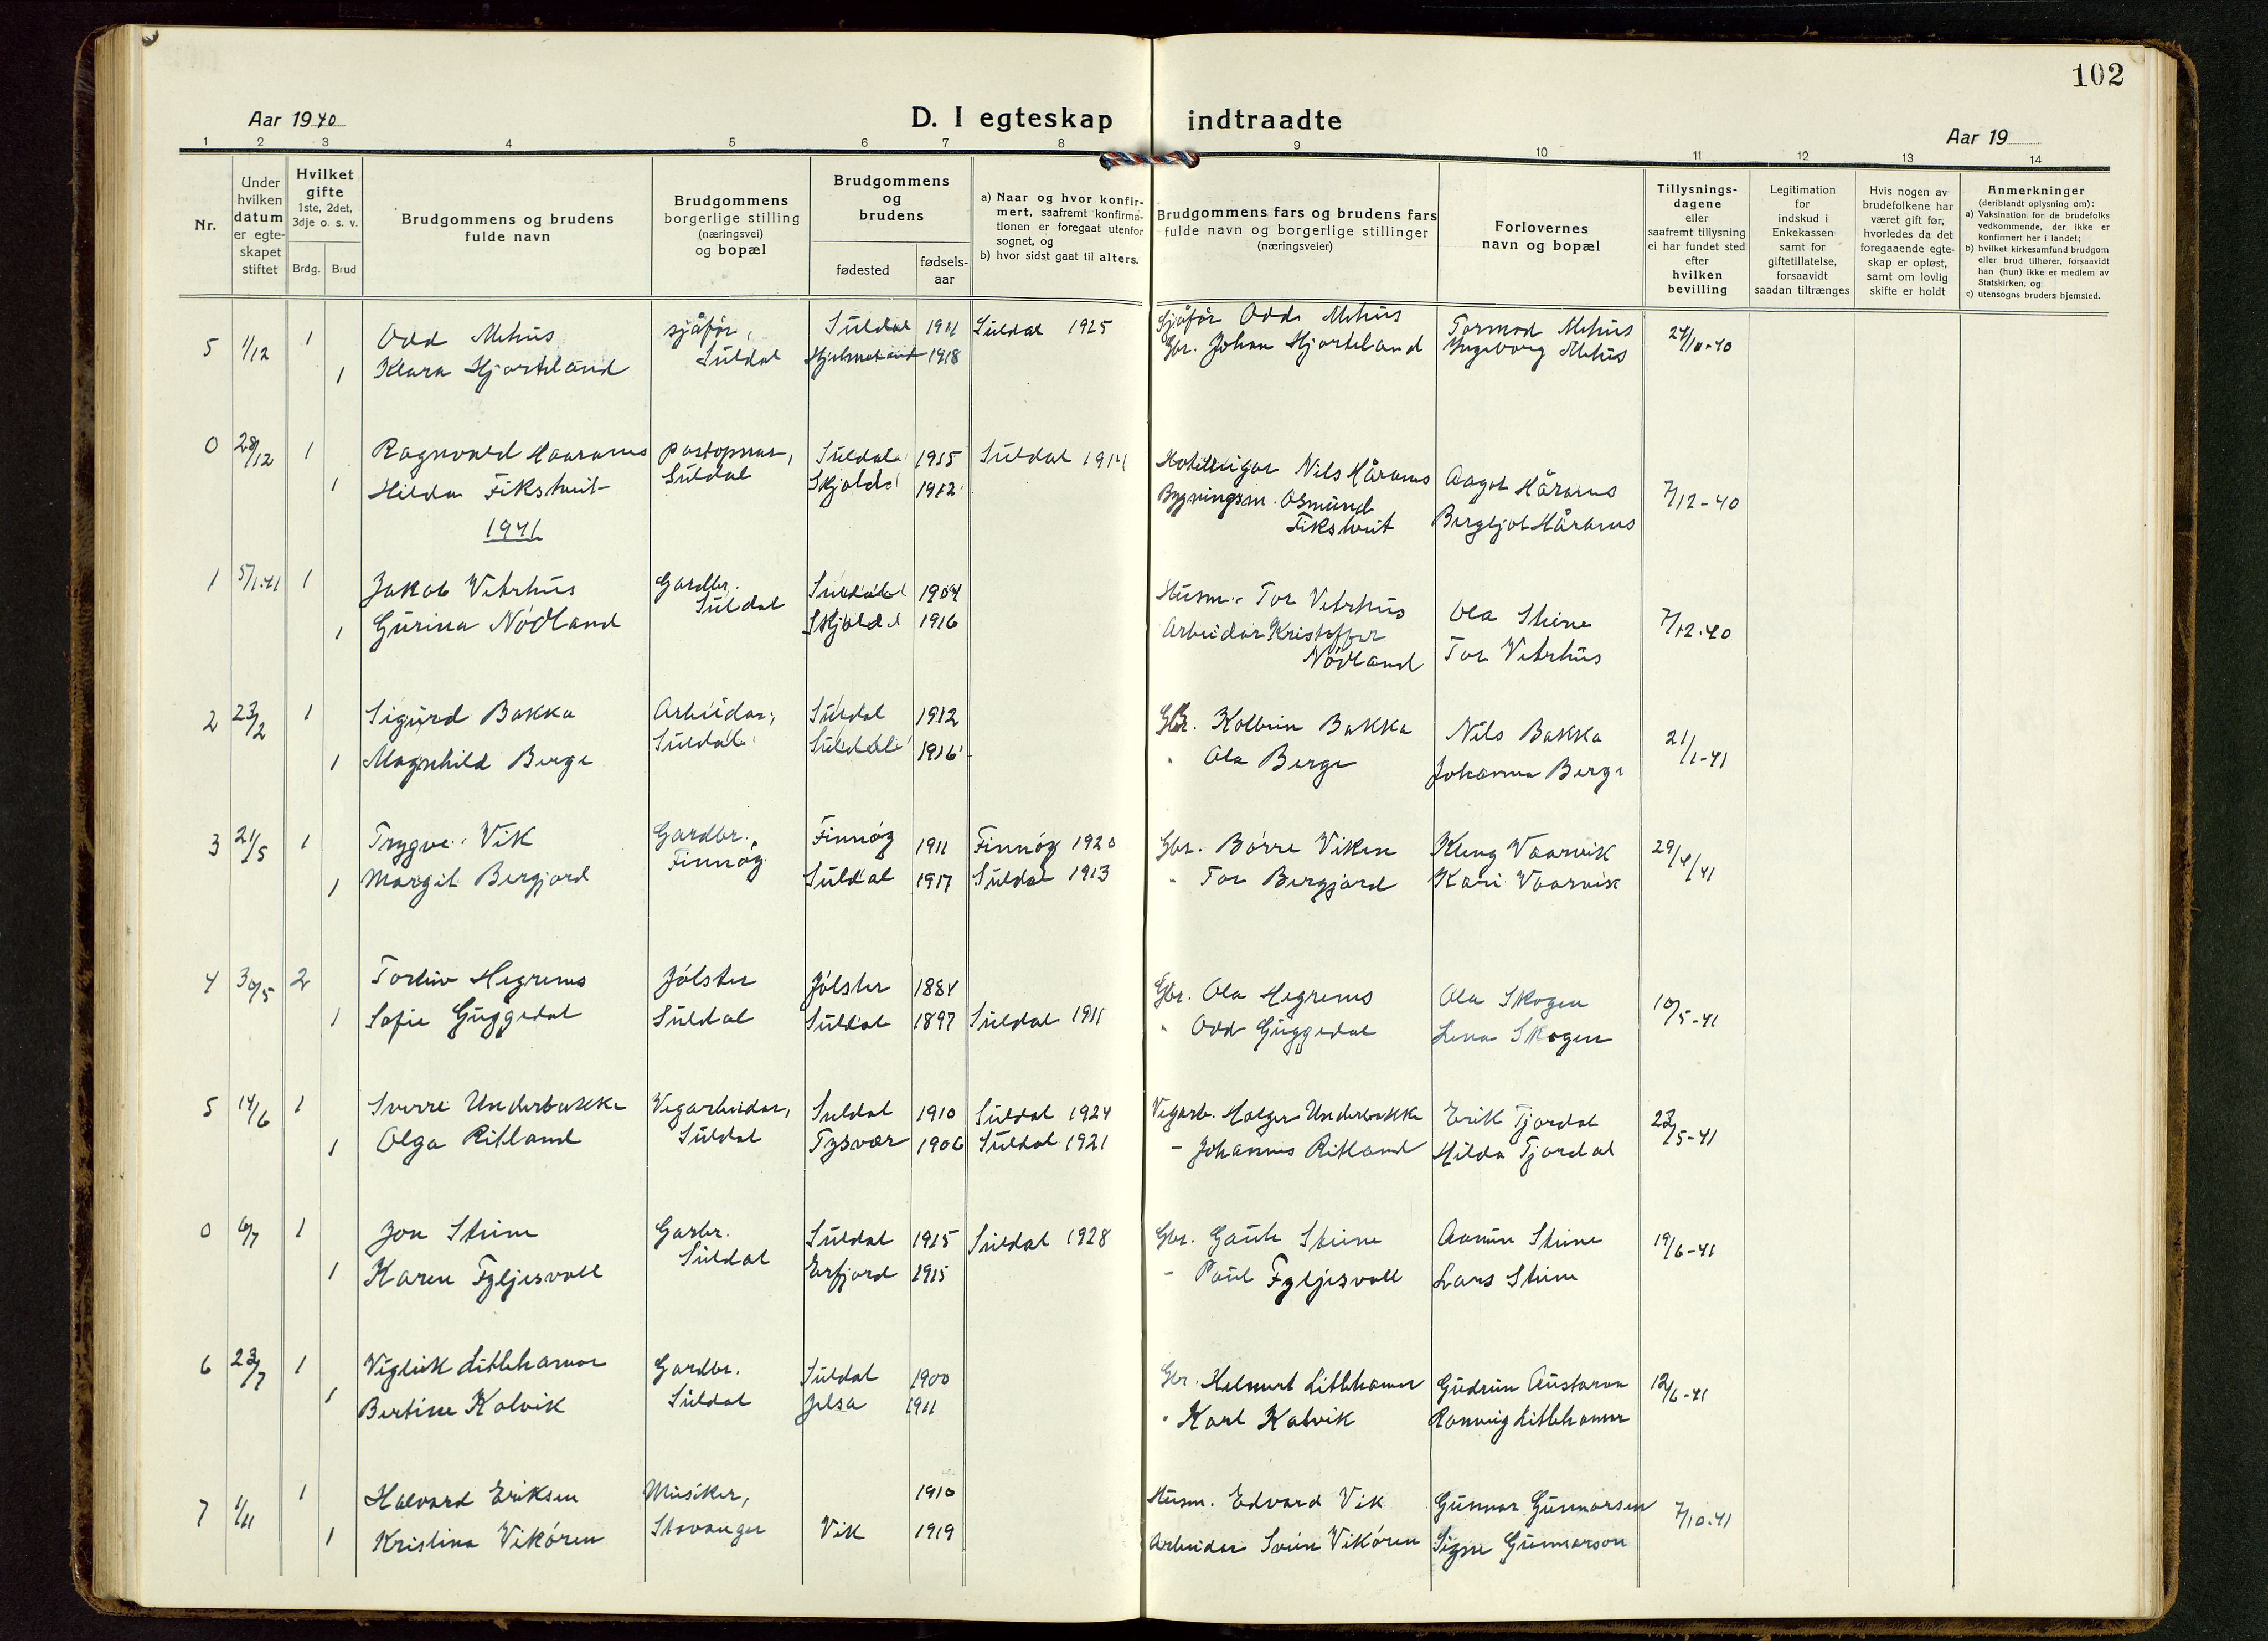 102
Aar 1940
D. I egteskap indtraadte
Aar 19
1 2 3 4 5 6 7 8 9 10 11 12 13 14
Nr.
Under hvilken datum er egteskapet stiftet
Hvilket gifte 1ste, 2det, 3dje o. s. v.
Brdg. Brud
Brudgommens og brudens fulde navn
Brudgommens borgerlige stilling (næringsvei) og bopæl
Brudgommens og brudens
fødested
fødsels-aar
a) Naar og hvor konfir-
mert, saafremt konfirma-
tionen er foregaat utenfor
sognet, og
b) hvor sidst gaat til alters.
Brudgommens fars og brudens fars
fulde navn og borgerlige stillinger
(næringsveier)
Forlovernes
navn og bopæl
Tillysnings-
dagene
eller
saafremt tillysning
ei har fundet sted
efter
hvilken
bevilling
Legitimation
for
indskud i
Enkekassen
samt for
giftetillatelse,
forsaavidt
saadan tiltrænges
Hvis nogen av
brudefolkene har
været gift før,
hvorledes da det
foregaaende egte-
skap er opløst,
samt om lovlig
skifte er holdt
Anmerkninger
(deriblandt oplysning om):
a) Vaksination for de brudefolks
vedkommende, der ikke er
konfirmert her i landet;
b) hvilket kirkesamfund brudgom
eller brud tilhører, forsaavidt
han (hun) ikke er medlem av
Statskirken, og
c) utensogns bruders hjemsted.
5 1/12 1 Odd Mehus sjåfør, Suldal 1911 Suldal 1925 Sjåfør Odd Mehus Tormod Mehus 24/11-40
1 Klara Hjorteland Suldal Hjelmeland 1918 Gbr. Johan Hjorteland Ingeborg Mehus
0 28/12 1 Ragnvald Haarams postopnar, Suldal 1915 Suldal 1914 Nils Hårams Aagot Hårams 7/12-40
1 Hilda Fikstveit Suldal Skjold 1912 Bygningsm. Osmund Fikstveit Bergljot Hårams
1941
1 5/1.41 1 Jakob Vetrhus Gardbr. Suldal 1904 Husm. Tor Vetrhus Ola Steine 7/12.40
1 Gurina Nødland Suldal Skjold 1916 Arbeidar Kristoffer Nødland Tor Vetrhus
2 23/2 1 Sigurd Bakka Arbeidar, Suldal 1912 Gbr. Kolbein Bakka Nils Bakka 21/1-41
1 Magnhild Berge Suldal Suldal 1916 " Ola Berge Johanna Berge
3 21/5 1 Trygve Vik Gardbr., Finnøy 1911 Finnøy 1920 Gbr. Børre Viken Kleng Vaarvik 29/4/41
1 Margit Bergjord Finnøy Suldal 1917 Suldal 1913 " Tor Bergjord Kari Vaarvik
4 30/5 2 Torleiv Hegrenes Jølster Jølster 1884 Gbr. Ola Hegrenes Ola Skogen 10/5-41
1 Sofie Guggedal Suldal Suldal 1897 Suldal 1911 " Odd Guggedal Lena Skogen
5 14/6 1 Sverre Underbakke Vegarbeidar, Suldal 1910 Suldal 1924 Vegarb. Holger Underbakke Erik Tjordal 23/5-41
1 Olga Ritland Suldal Tysvær 1906 Suldal 1921 - Johannes Ritland Hilda Tjordal
0 6/7 1 Jon Steine Garbr. Suldal 1915 Suldal 1928 Gbr. Gaute Steine Aanun Steine 19/6-41
1 Karen Fyljesvoll Suldal Erfjord 1915 - Paul Fyljesvoll Lars Steine
6 23/7 1 Vigleik Litlehamar Gardbr. Suldal 1900 Gbr. Helmert Litlehamar Gudrun Austaraa 12/6-41
1 Bertine Kalvik Suldal Jelsa 1911 " Karl Kalvik Ranveig Litlehamar
7 1/11 1 Halvard Eriksen Musiker, 1910 Husm. Edvard Vik Gunnar Gunnarsen 7/10.41
1 Kristina Vikøren Stavanger Vik 1919 Arbeidar Vikøren Signe Gunnarson